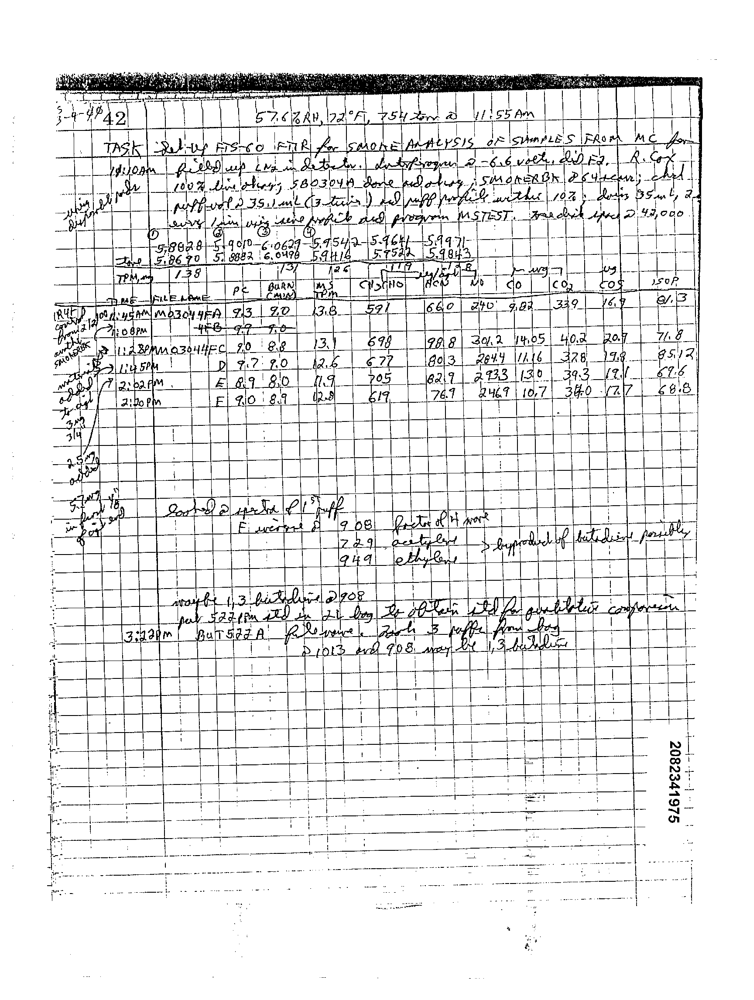 3-4-98 42 57.6%RH, 72°F, 754 torr @ 11:55 Am
TASK Set-up FTS-60 FTIR for SMOKE ANALYSIS OF SAMPLES FROM MC for R. Cox
10:10Am filled up LN2 in detector. @ -6.6 volts, did
100% line okay; SB0304A done and okay; SMOKERBK @ 64 scans; chkd
puff vol @ 35.1 mL (3 times) and puff profile within 10%; doing 35 mL, 2
every 1 min using sine profile and program MSTEST. disk space @ 42,000
using
① ② ③ ④
5.8828 5.9010 6.0629 5.9542 5.9641 5.9971
tare 5.8690 5.8882 6.0498 5.9416 5.9522 5.9843
TPM, mg 138 131 126 119 128
ug/cig mg ug
TIME FILENAME PC BURN (MIN) MS TPM CH3CHO HCN NO CO CO2 COS ISOP.
1R4F 11:45AM M03044FA 9.3 9.0 13.8 591 66.0 240 9.82 33.9 16.9 81.3
control from 2/2 until SMOKERBK
1:08PM 4FB 9.7 9.0
1:28PM M03044FC 9.0 8.8 13.1 698 98.8 301.2 14.05 40.2 20.7 71.8
1:45PM D 9.7 9.0 12.6 677 80.3 284.4 11.16 37.8 19.8 85.12
2:02PM E 8.9 8.0 11.9 705 82.9 293.3 13.0 39.3 19.1 69.6
2:20PM F 9.0 8.9 12.8 619 76.9 246.9 10.7 34.0 17.7 68.8
added
to cig
3 mg
3/4
2.5 mg
added
5.7 mg
in first
of cig end
Looked @ spectra of 1st puff
E increase @ 908 factor of 4 more
729 acetylene > byproduct of butadiene possibly
949 ethylene
maybe 1,3 butadiene @ 908
put 522 ppm std in 2L bag to obtain std for qualitative comparison
3:22PM BUT522A filename. Took 3 puffs from bag
@ 1013 and 908 may be 1,3 butadiene
2082341975